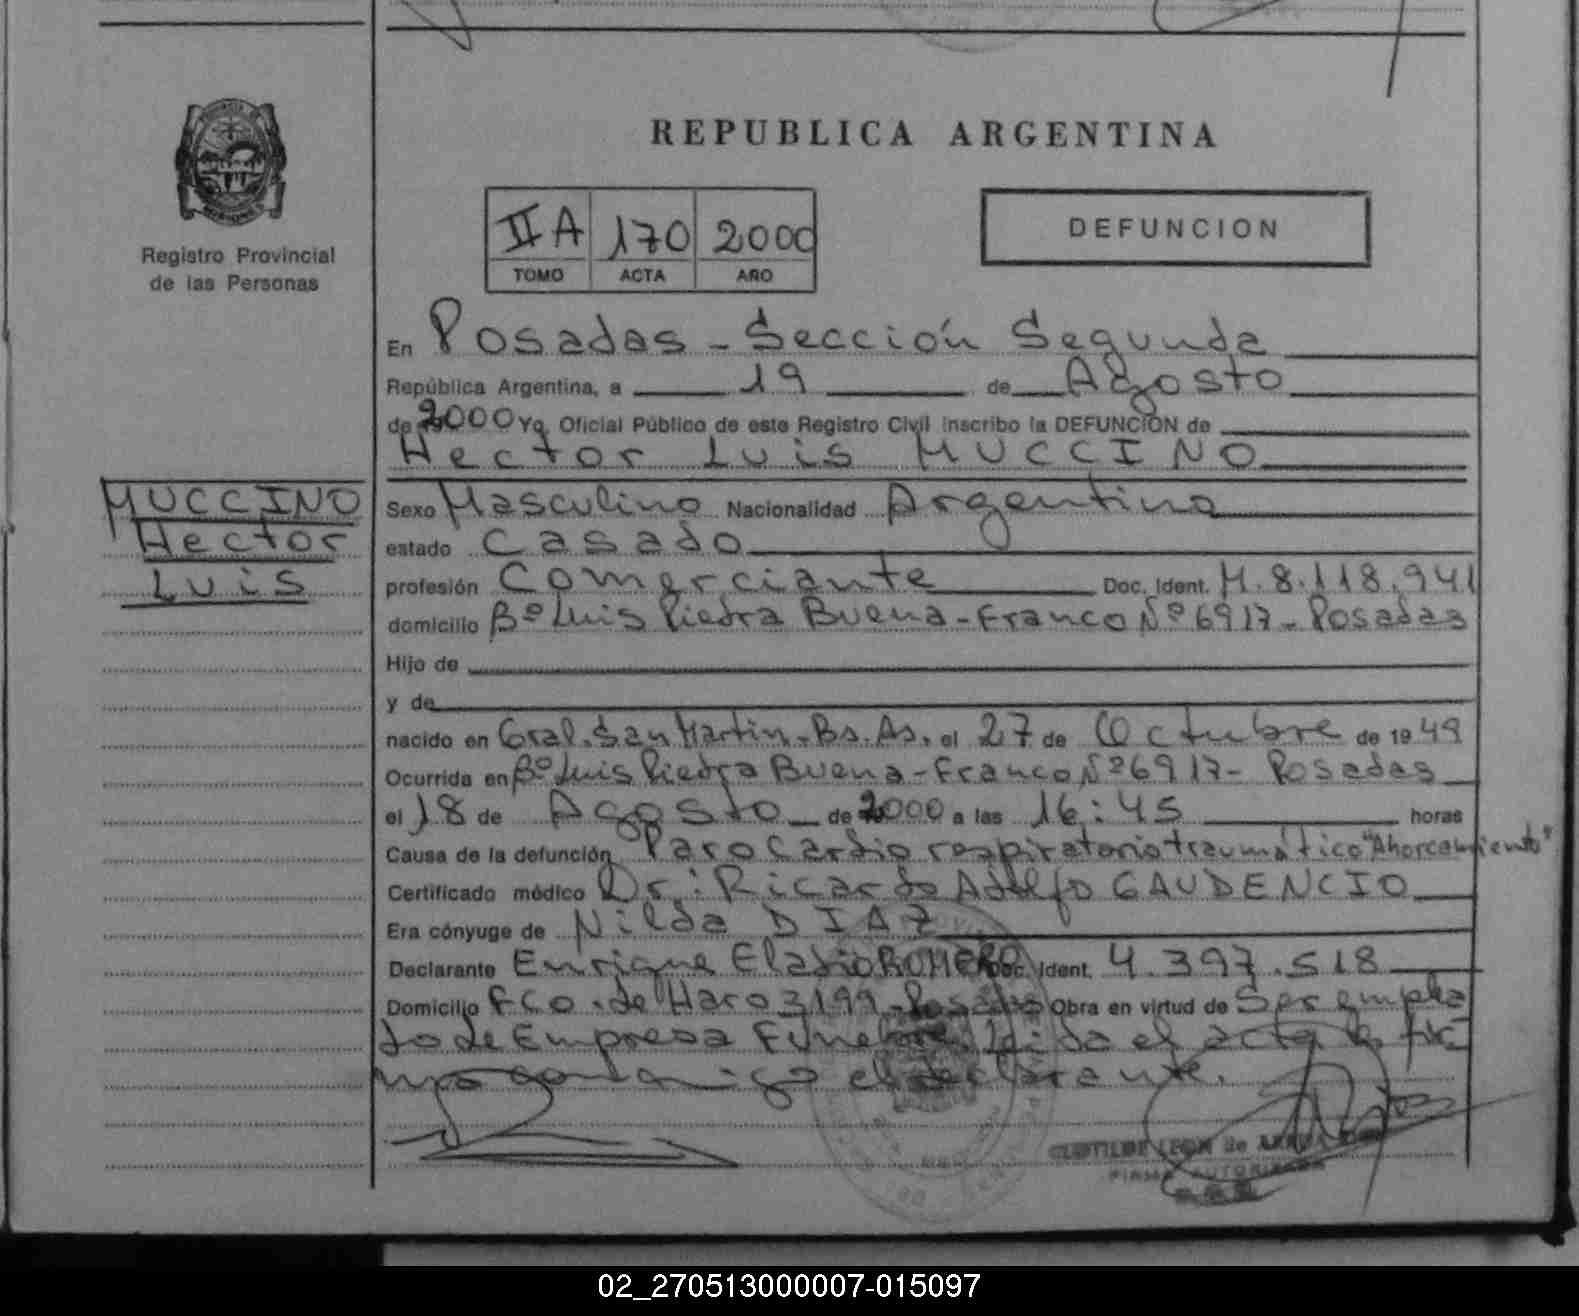 REPUBLICA ARGENTINA
Registro Provincial
de las Personas
II A 170 2000
TOMO ACTA AÑO
DEFUNCION
En Posadas - Sección Segunda
República Argentina, a 19 de Agosto
de 2000 Yo, Oficial Público de este Registro Civil inscribo la DEFUNCION de
Hector Luis MUCCINO
MUCCINO
Hector
Luis
Sexo Masculino Nacionalidad Argentina
estado Casado
profesión Comerciante Doc. Ident. M. 8.118.941
domicilio Bº Luis Piedra Buena - Franco Nº 6917 - Posadas
Hijo de
y de
nacido en Gral. San Martin. Bs. As. el 27 de Octubre de 19 49
Ocurrida en Bº Luis Piedra Buena - Franco Nº 6917 - Posadas
el 18 de Agosto de 2000 a las 16:45 horas
Causa de la defunción Paro Cardio respiratorio traumático "Ahorcamiento"
Certificado médico Dr: Ricardo Adolfo GAUDENCIO
Era cónyuge de Nilda DIAZ
Declarante Enrique Eladio ROMERO Doc. Ident. 4.397.518
Domicilio Fco. de Haro 3199 - Posadas Obra en virtud de Ser emplea
do de Empresa Funebre Leida el acta la fir
ma conmigo el declarante.
CLOTILDE LEON de
FIRMA AUTORIZADA
02_270513000007-015097